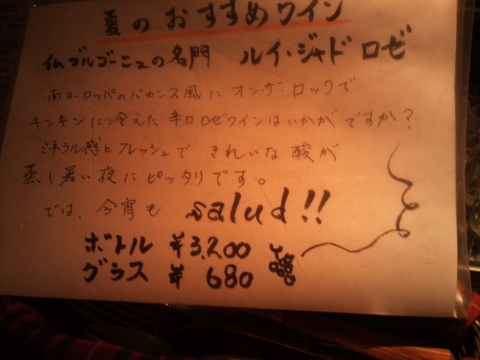 夏のおすすめワイン
仏ブルゴーニュの名門 ルイ・ジャド ロゼ
南ヨーロッパのバカンス風に オン・ザ・ロックで
キンキンに冷えた 辛口ロゼワインはいかがですか?
ミネラル感とフレッシュで きれいな酸が
蒸し暑い夜に ピッタリです。
では、今宵も salud!!
ボトル ¥3,200
グラス ¥ 680